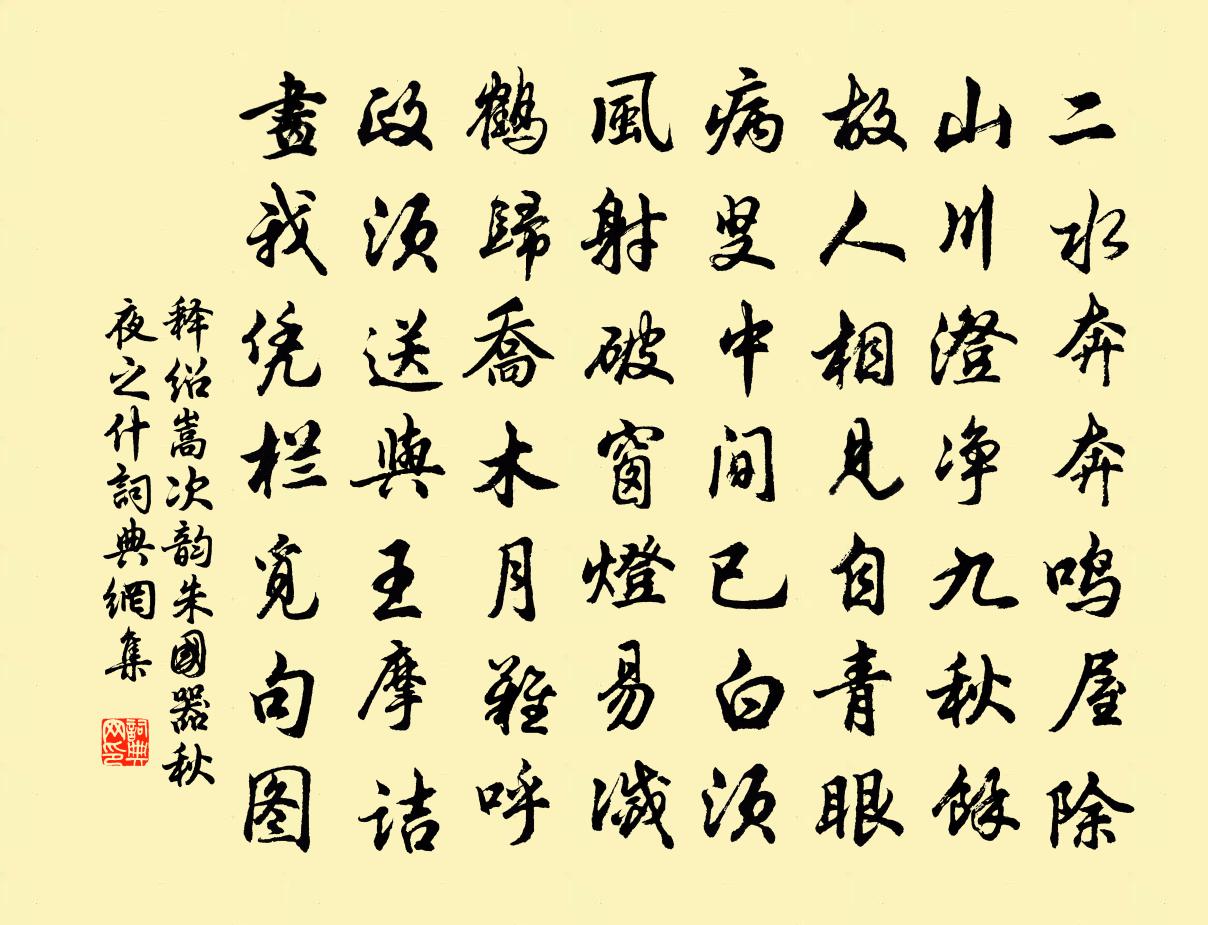 二水奔奔鸣屋除
山川澄净九秋馀
故人相見自青眼
病叟中间已白须
風射破窗燈易滅
鹤歸喬木月難呼
政须送與王摩诘
畫我凭栏覓句图
释绍嵩次韵朱國器秋
夜之什詞典網集
詞典网印